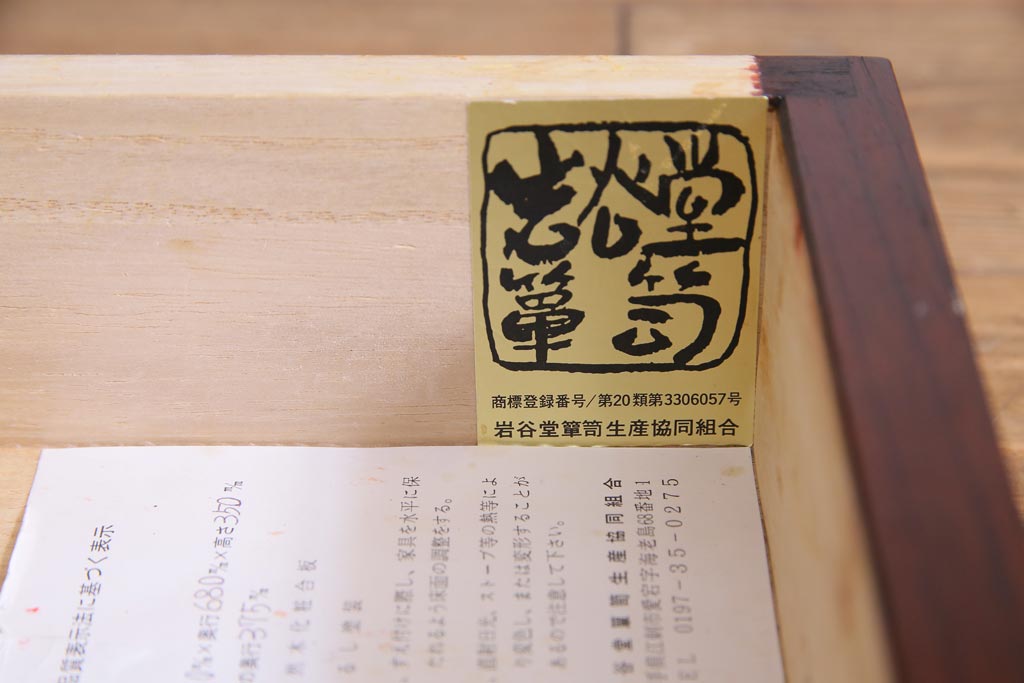 岩谷堂
箪笥
商標登録番号/第20類第3306057号
岩谷堂箪笥生産協同組合
品質表示法に基づく表示
0㎜×奥行680㎜×高さ350㎜
の奥行375㎜
然木化粧合板
るし塗装
すえ付けに際し、家具を水平に保
たれるよう床面の調整をする。
直射日光、ストーブ等の熱等によ
り変色し、または変形することが
あるので注意して下さい。
谷堂箪笥生産協同組合
手県江刺市愛宕字海老島68番地1
EL 0197-35-0275